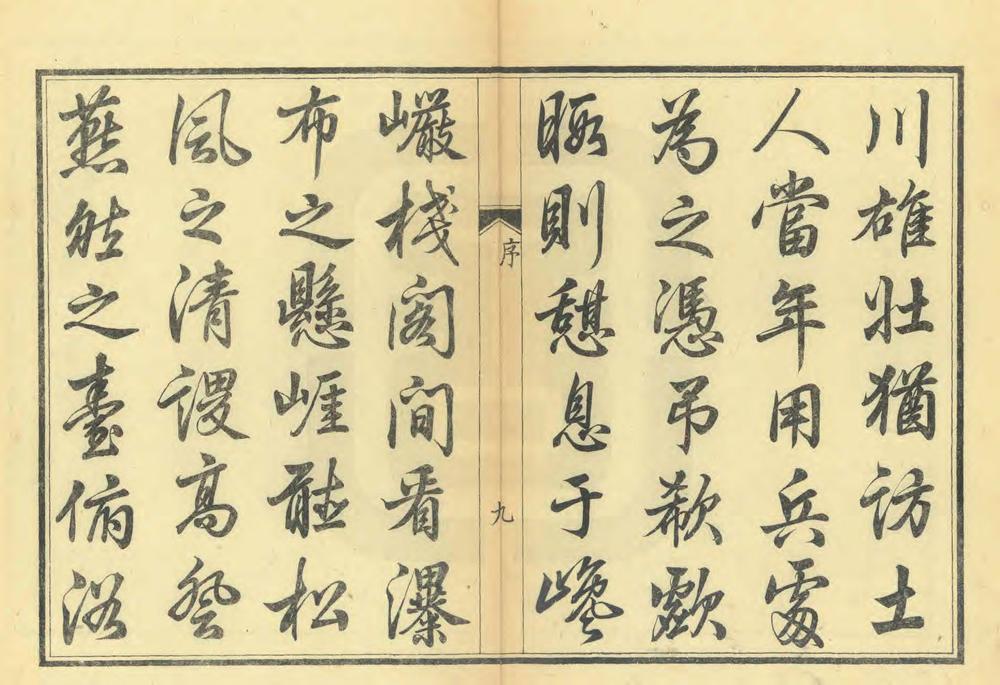 川雄壯猶訪土
人當年用兵處
為之憑弔欷歔
暇則憩息于巉
序
九
巖棧閣間看瀑
布之懸崕聽松
風之清謖高登
燕然之臺俯浴